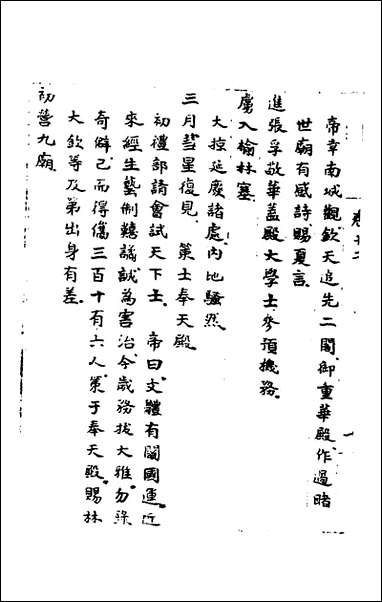 帝幸南城觀欽天追先二閣御重華殿作過睹
世廟有感詩賜夏言
進張孚敬華蓋殿大學士參預機務
虜入榆林塞
大掠延慶諸處內地騷然
三月彗星復見 策士奉天殿
初禮部請會試天下士 帝曰文體有關國運近
來經生藝制穩議誠為害治今歲務拔大雅勿錄
奇僻已而得儁三百十有六人策于奉天殿賜林
大欽等及第出身有差
初營九廟